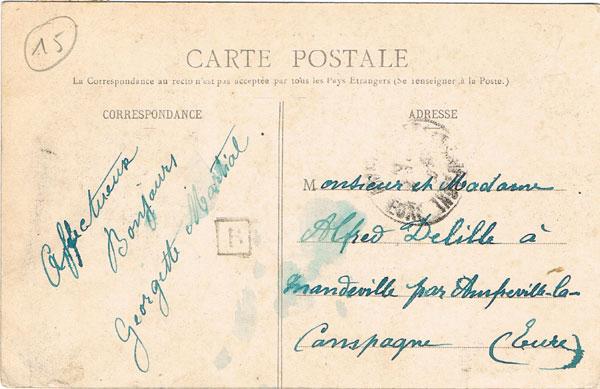 15
CARTE POSTALE
La Correspondance au recto n'est pas acceptée par tous les Pays Etrangers (Se renseigner à la Poste.)
CORRESPONDANCE
ADRESSE
Affectueux
Bonjours
Georgette Martial
E
Monsieur et Madame
Alfred Delille à
Mandeville par Amfreville-la-
Campagne (Eure)
EURE